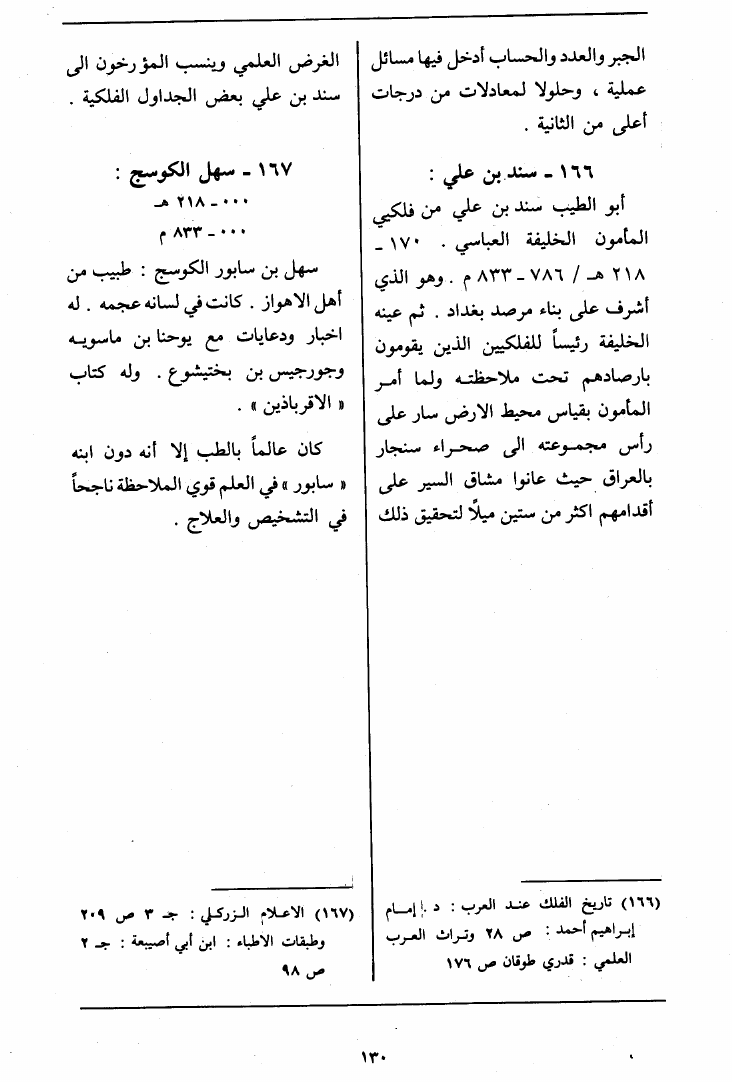 الجبر والعدد والحساب أدخل فيها مسائل
عملية ، وحلولا لمعادلات من درجات
أعلى من الثانية .
١٦٦ - سند بن علي :
أبو الطيب سند بن علي من فلكيي
المأمون الخليفة العباسي . ١٧٠ -
٢١٨ هـ / ٧٨٦ - ٨٣٣ م . وهو الذي
أشرف على بناء مرصد بغداد . ثم عينه
الخليفة رئيساً للفلكيين الذين يقومون
بارصادهم تحت ملاحظته ولما أمر
المأمون بقياس محيط الارض سار على
رأس مجموعته الى صحراء سنجار
بالعراق حيث عانوا مشاق السير على
أقدامهم اكثر من ستين ميلاً لتحقيق ذلك
(١٦٦) تاريخ الفلك عند العرب : د . إمام
إبراهيم أحمد : ص ٢٨ وتراث العرب
العلمي : قدري طوقان ص ١٧٦
الغرض العلمي وينسب المؤرخون الى
سند بن علي بعض الجداول الفلكية .
١٦٧ - سهل الكوسج :
٠٠٠ - ٢١٨ هـ
٠٠٠ - ٨٣٣ م
سهل بن سابور الكوسج : طبيب من
أهل الاهواز . كانت في لسانه عجمه . له
اخبار ودعابات مع يوحنا بن ماسويه
وجورجيس بن بختيشوع . وله كتاب
« الاقرباذين » .
كان عالماً بالطب إلا أنه دون ابنه
« سابور » في العلم قوي الملاحظة ناجحاً
في التشخيص والعلاج .
(١٦٧) الاعلام الزركلي : جـ ٣ ص ٢٠٩
وطبقات الاطباء : ابن أبي أصيبعة : جـ ٢
ص ٩٨
١٣٠